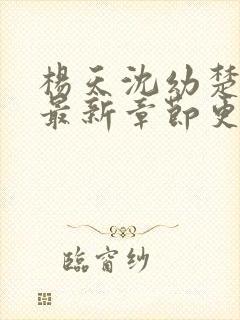 楊天沈幼楚
最新章節更
臨窗紗